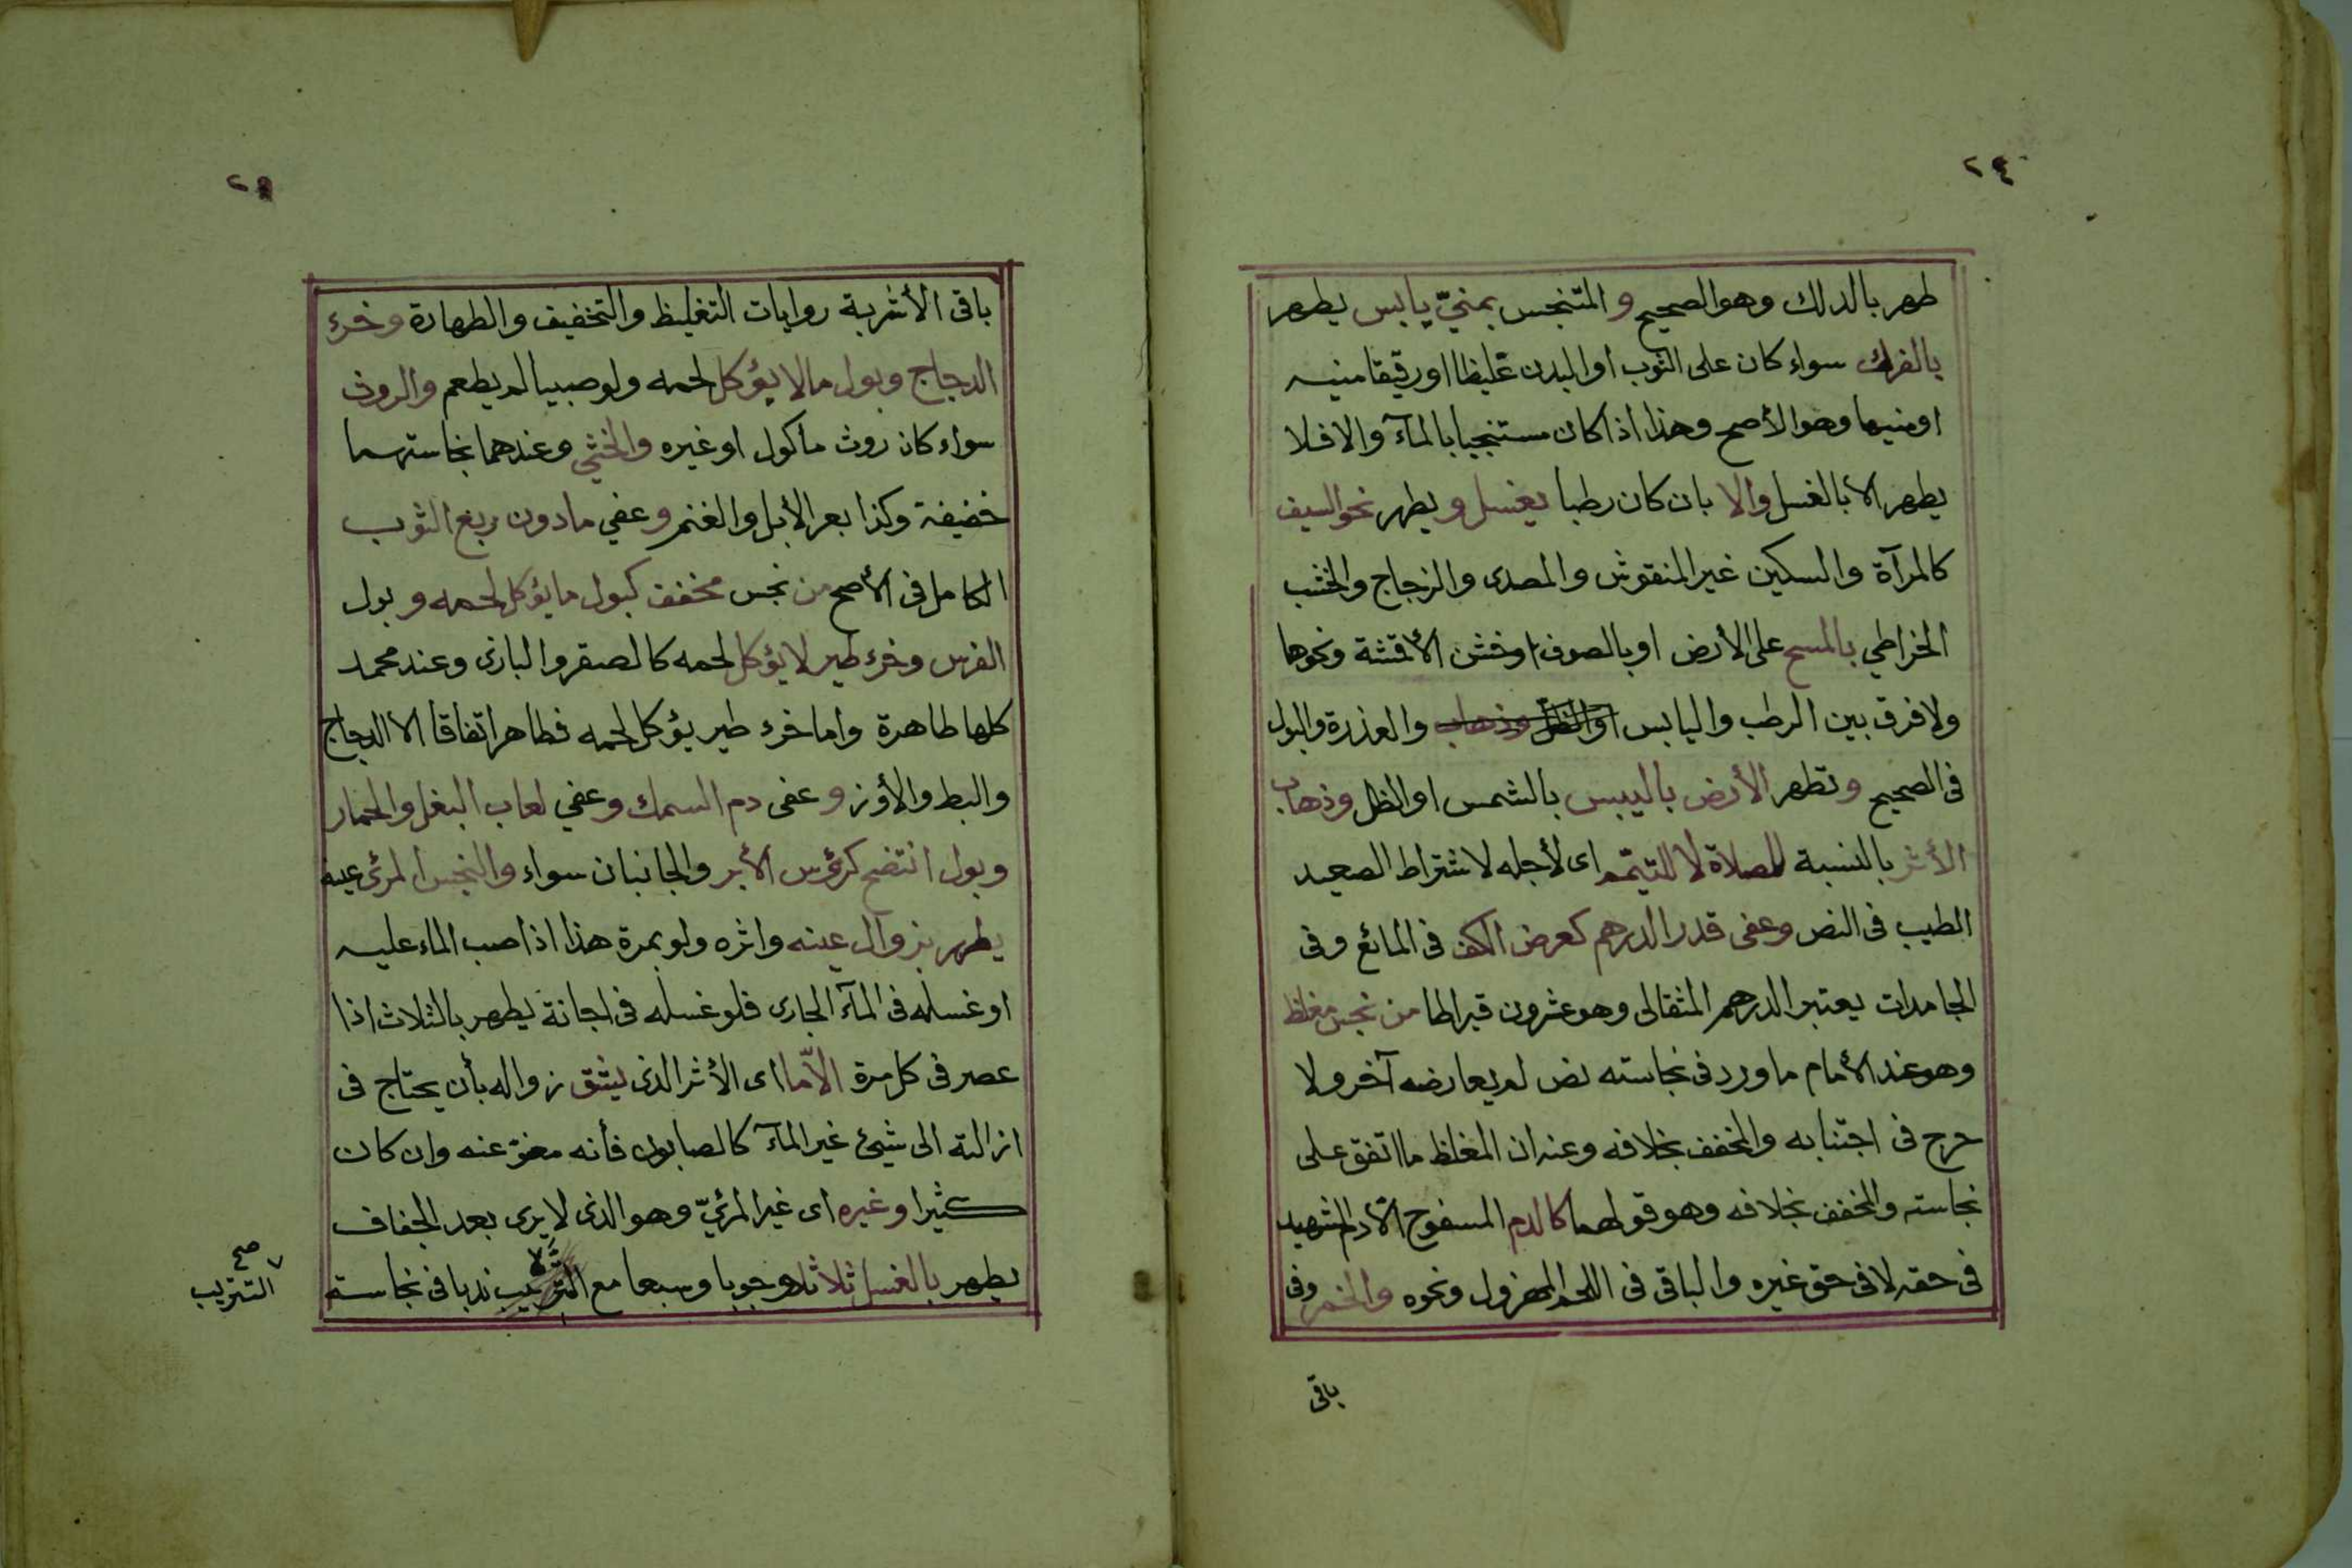 ٢٤
طهر بالدلك وهو الصحيح و المتنجس بمنيّ يابس يطهر
بالفرك سواء كان على الثوب او البدن غليظا او رقيقا منيه
او منيها وهو الأصح وهذا اذا كان مستنجيا بالمآء والا فلا
يطهر الا بالغسل والا بان كان رطبا يغسل و يطهر نحو السيف
كالمرآة والسكين غير المنقوش والمصدى والزجاج والخشب
الخراطي بالمسح على الأرض او بالصوف او خشن الأقمشة ونحوها
ولا فرق بين الرطب واليابس او الظل وذهاب والعذرة والبول
فى الصحيح وتطهر الأرض باليبس بالشمس او الظل وذهاب
الأثر بالنسبة للصلاة لا للتيمّم اى لأجله لاشتراط الصعيد
الطيب فى النص وعفى قدر الدرهم كعرض الكف فى المائع وفى
الجامدات يعتبر الدرهم المثقالى وهو عشرون قيراطا من نجس مغلظ
وهو عند الأمام ما ورد فى نجاسته نص لم يعارضه آخر ولا
حرج فى اجتنابه والمخفف بخلافه وعند ان المغلظ ما اتفق على
نجاسته والمخفف بخلافه وهو قولهما كالدم المسفوح الا دم الشهيد
فى حقه لا فى حق غيره والباقى فى اللحم المهزول ونحوه والخمر وفى
باقى
باقى الأشربة روايات التغليظ والتخفيف والطهارة وخرء
الدجاج وبول مالا يؤكل لحمه ولو صبيا لم يطعم والروث
سواء كان روث مأكول او غيره والخثي وعندهما نجاستهما
خفيفة وكذا بعر الأبل والغنم وعفي مادون ربع الثوب
الكامل فى الأصح من نجس مخفف كبول ما يؤكل لحمه وبول
الفرس وخرء طير لا يؤكل لحمه كالصقر والبازى وعند محمد
كلها طاهرة واما خرء طير يؤكل لحمه فطاهر اتفاقا الا الدجاج
والبط والأوز وعفى دم السمك وعفي لعاب البغل والحمار
وبول انتضح كرؤس الأبر والجانبان سواء والنجس المرئى عينه
يطهر بزوال عينه واثره ولو بمرة هذا اذا صب الماء عليه
او غسله فى المآء الجارى فلو غسله فى اجانة يطهر بالثلاث اذا
عصر فى كل مرة الاّ ما اى الأثر الذى يشق زواله بأن يحتاج فى
ازالته الى شيئ غير المآء كالصابون فأنه معفوّ عنه وان كان
كثيرا وغيره اى غير المرئيّ وهو الذى لا يرى بعد الجفاف
يطهر بالغسل ثلاثا وجوبا وسبعا مع ندبا فى نجاسة
صح
التتريب